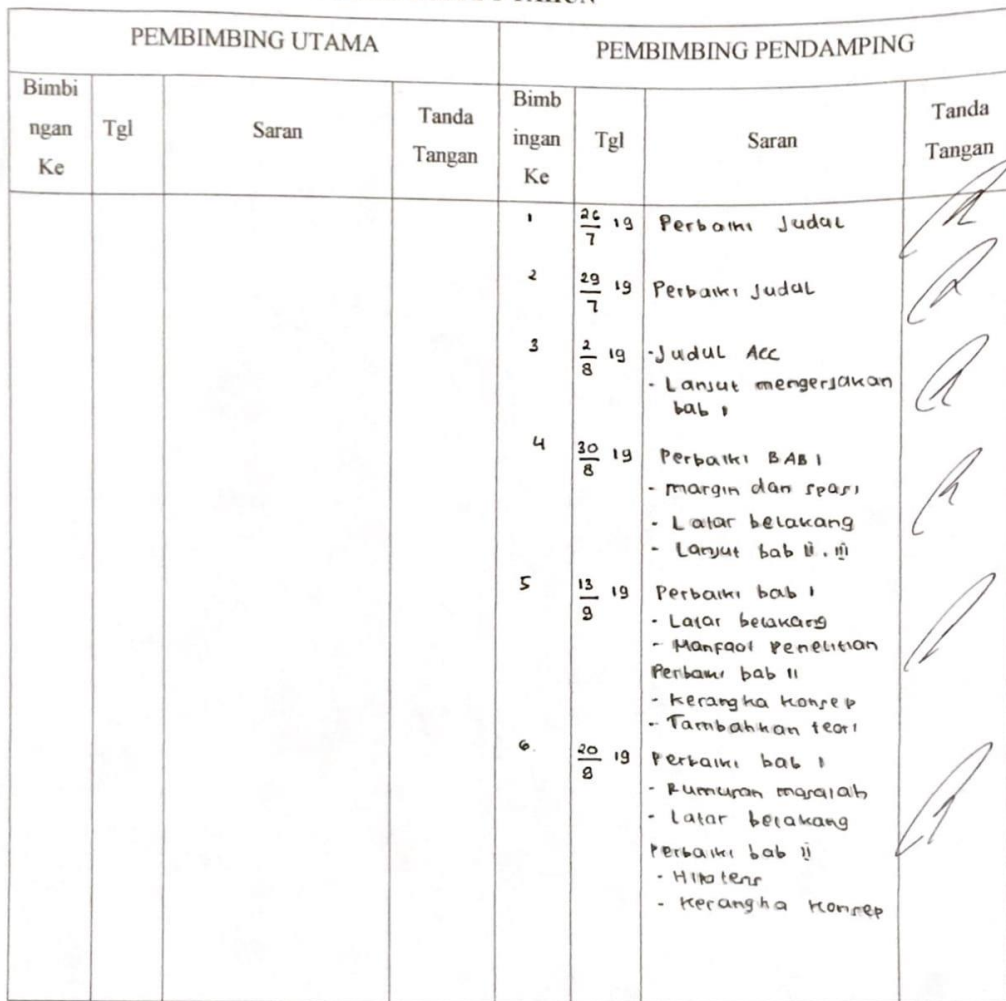 TAHUN
PEMBIMBING UTAMA
PEMBIMBING PENDAMPING
Bimbi
ngan
Ke
Tgl
Saran
Tanda
Tangan
Bimb
ingan
Ke
Tgl
Saran
Tanda
Tangan
1 26/7 19 Perbaiki Judul
2 29/7 19 Perbaiki Judul
3 2/8 19 - Judul Acc
- Lanjut mengerjakan
bab 1
4 30/8 19 Perbaiki BAB 1
- margin dan spasi
- Latar belakang
- Lanjut bab ii, iii
5 13/9 19 Perbaiki bab 1
- Latar belakang
- Manfaat Penelitian
Perbaiki bab 11
- Kerangka konsep
- Tambahkan teori
6. 20/9 19 Perbaiki bab 1
- Rumusan masalah
- Latar belakang
Perbaiki bab ii
- Hipotesis
- Kerangka Konsep